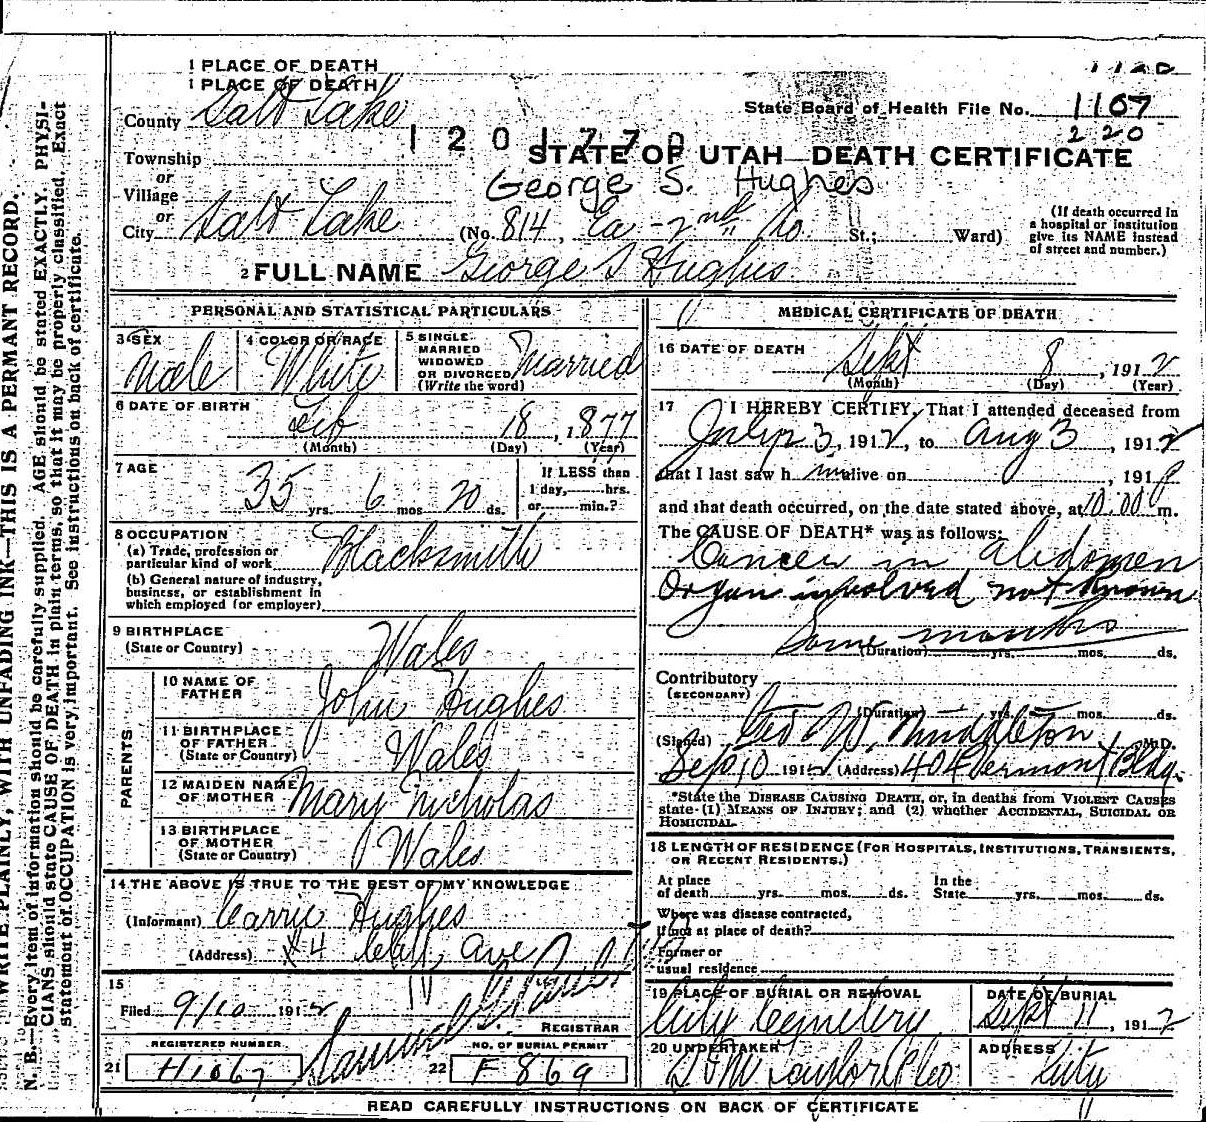 1 PLACE OF DEATH
1 PLACE OF DEATH
County Salt Lake
State Board of Health File No. 1107
220
1201770
Township
or
Village
or
City Salt Lake
STATE OF UTAH—DEATH CERTIFICATE
George S. Hughes
(No. 814, Ea - 2nd So. St.; Ward)
(If death occurred in
a hospital or institution
give its NAME instead
of street and number.)
2 FULL NAME George S Hughes
PERSONAL AND STATISTICAL PARTICULARS
3 SEX Male
4 COLOR OR RACE White
5 SINGLE
MARRIED
WIDOWED
OR DIVORCED
(Write the word) Married
6 DATE OF BIRTH
Feb 18, 1877
(Month) (Day) (Year)
7 AGE
35 yrs. 6 mos 20 ds.
If LESS than
1 day, hrs.
or min.?
8 OCCUPATION
(a) Trade, profession or
particular kind of work Blacksmith
(b) General nature of industry,
business, or establishment in
which employed (or employer)
9 BIRTHPLACE
(State or Country) Wales
PARENTS
10 NAME OF
FATHER John Hughes
11 BIRTHPLACE
OF FATHER
(State or Country) Wales
12 MAIDEN NAME
OF MOTHER Mary Nicholas
13 BIRTHPLACE
OF MOTHER
(State or Country) Wales
14 THE ABOVE IS TRUE TO THE BEST OF MY KNOWLEDGE
(Informant) Carrie Hughes
(Address) Ave
15
Filed 9/10 1912
REGISTRAR
REGISTERED NUMBER
21 H1067
NO. OF BURIAL PERMIT
22 F 869
MEDICAL CERTIFICATE OF DEATH
16 DATE OF DEATH
Sept 8, 1912
(Month) (Day) (Year)
17 I HEREBY CERTIFY, That I attended deceased from
July 23, 1912, to Aug 3, 1912
that I last saw him alive on , 191
and that death occurred, on the date stated above, at 10.00 m.
The CAUSE OF DEATH* was as follows:
Cancer in abdomen
Organ involved not known
Some months
(Duration) yrs. mos. ds.
Contributory
(SECONDARY)
(Duration) yrs. mos. ds.
(Signed) Geo W. Middleton M.D.
Sep 10 1912 (Address) 404 Vermont Bldg.
*State the DISEASE CAUSING DEATH, or, in deaths from VIOLENT CAUSES
state (1) MEANS OF INJURY; and (2) whether ACCIDENTAL, SUICIDAL OR
HOMICIDAL.
18 LENGTH OF RESIDENCE (FOR HOSPITALS, INSTITUTIONS, TRANSIENTS,
OR RECENT RESIDENTS.)
At place
of death yrs. mos. ds.
In the
State yrs. mos. ds.
Where was disease contracted,
if not at place of death?
Former or
usual residence
19 PLACE OF BURIAL OR REMOVAL
City Cemetery
DATE OF BURIAL
Sept 11, 1912
20 UNDERTAKER
Taylor & Co
ADDRESS
City
READ CAREFULLY INSTRUCTIONS ON BACK OF CERTIFICATE
WRITE PLAINLY, WITH UNFADING INK—THIS IS A PERMANT RECORD.
N. B.—Every item of information should be carefully supplied. AGE should be stated EXACTLY. PHYSI-
CIANS should state CAUSE OF DEATH in plain terms, so that it may be properly classified. Exact
statement of OCCUPATION is very important. See instructions on back of certificate.